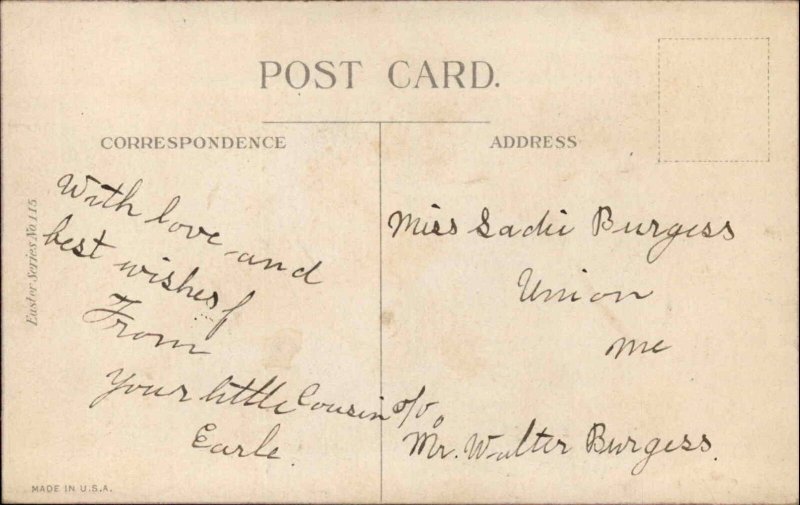 POST CARD.
CORRESPONDENCE
ADDRESS
Easter Series No. 115
With love and
best wishes
From
Your little Cousin
Earle.
Miss Sadie Burgess
Union
Me
c/o,
Mr. Walter Burgess.
MADE IN U.S.A.